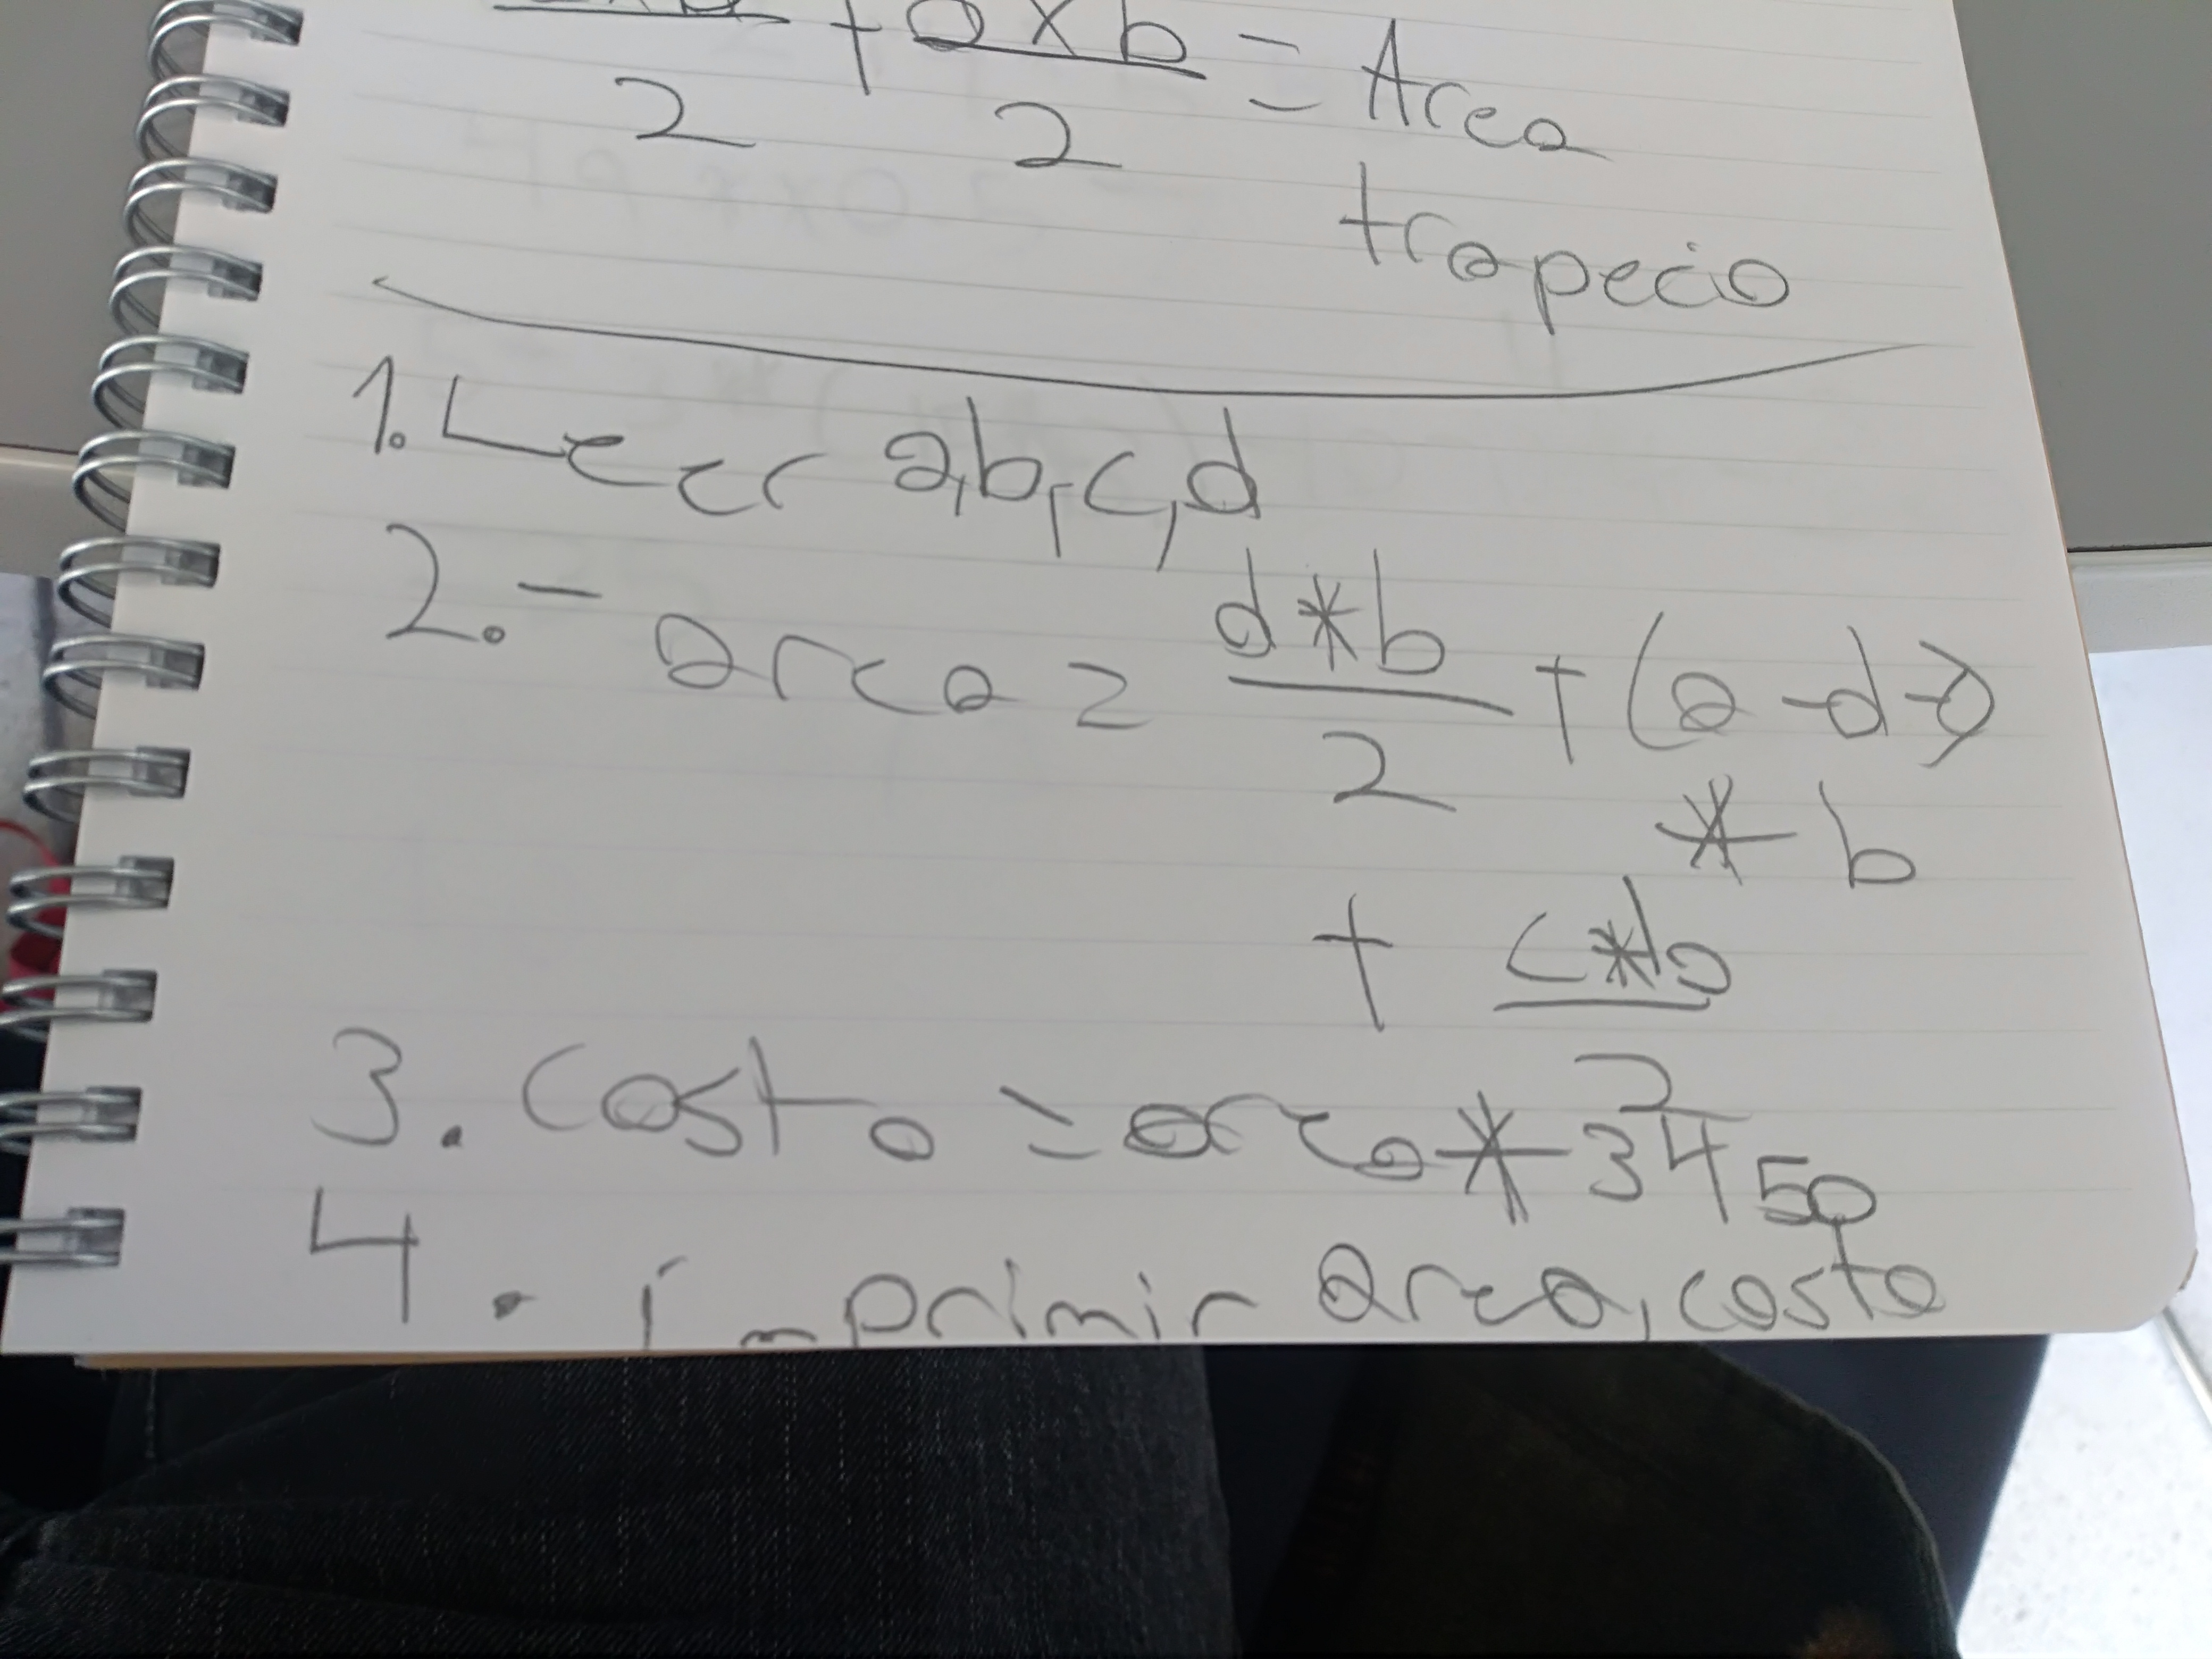 + a x b = Area
2 2
trapecio
1. Leer a,b,c,d
2.- area = d*b + (a-d-c)
2
* b
+ c*b
2
3. costo = area * 3450
4. imprimir area, costo